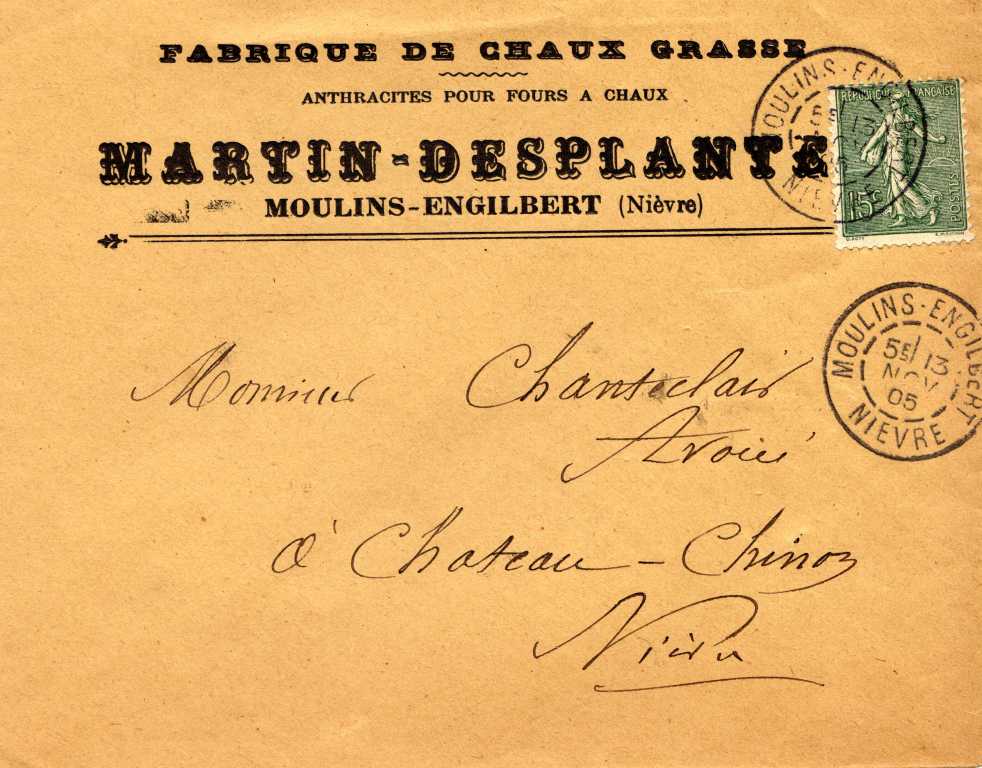 FABRIQUE DE CHAUX GRASSE
ANTHRACITES POUR FOURS A CHAUX
MARTIN-DESPLANTE
MOULINS-ENGILBERT (Nièvre)
REPUBLIQUE FRANÇAISE
POSTES
15c
MOULINS-ENGILBERT
5E/13
NIEVRE
MOULINS-ENGILBERT
5E/13
NOV
05
NIEVRE
Monsieur Chanteclair
Avoué
à Chateau-Chinon
Nièvre